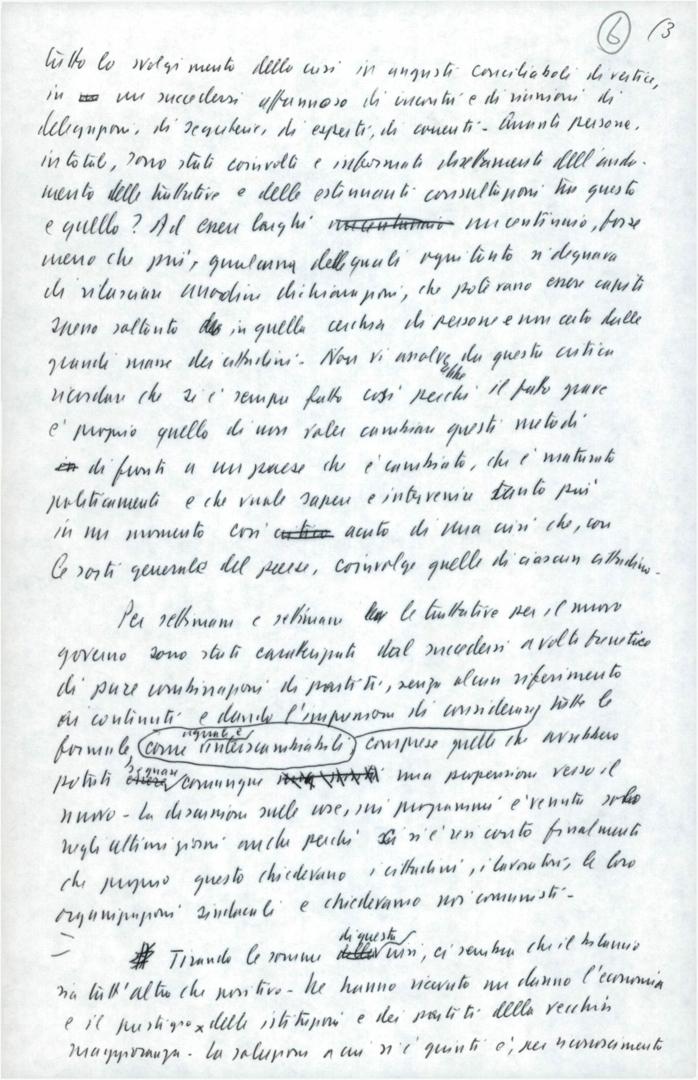 6 13
tutto lo svolgimento della crisi in angusti conciliaboli di vertice,
in un succedersi affannoso di incontri e di riunioni di
delegazioni, di segreterie, di esperti, di correnti - Quante persone,
in totale, sono state coinvolte e informate direttamente dell'anda-
mento delle trattative e delle estenuanti consultazioni tra questo
e quello? Ad essere larghi un centinaio, forse
meno che più, qualcuna delle quali ogni tanto si degnava
di rilasciare anodine dichiarazioni, che potevano essere capite
spesso soltanto in quella cerchia di persone e non certo dalle
grandi masse dei cittadini - Non vi assolve da questa critica
ricordare che si è sempre fatto così perché il fatto grave
è proprio quello di non voler cambiare questi metodi
di fronte a un paese che è cambiato, che è maturato
politicamente e che vuole sapere e intervenire tanto più
in un momento così acuto di una crisi che, con
le sorti generali del paese, coinvolge quelle di ciascun cittadino -
Per settimane e settimane le trattative per il nuovo
governo sono state caratterizzate dal succedersi a volte frenetico
di pure combinazioni di partiti, senza alcun riferimento
ai contenuti e dando l'impressione di considerare tutte le
formule come interscambiabili comprese quelle che avrebbero
potuto segnare comunque una propensione verso il
nuovo - La discussione sulle cose, sui programmi è venuta solo
negli ultimi giorni anche perché si è reso conto finalmente
che proprio questo chiedevano i cittadini, i lavoratori, le loro
organizzazioni sindacali e chiedevamo noi comunisti -
Tirando le somme di questa crisi, ci sembra che il bilancio
sia tutt'altro che positivo - Ne hanno ricavato un danno l'economia
e il prestigio delle istituzioni e dei partiti della vecchia
maggioranza - La soluzione a cui si è giunti è, per riconoscimento